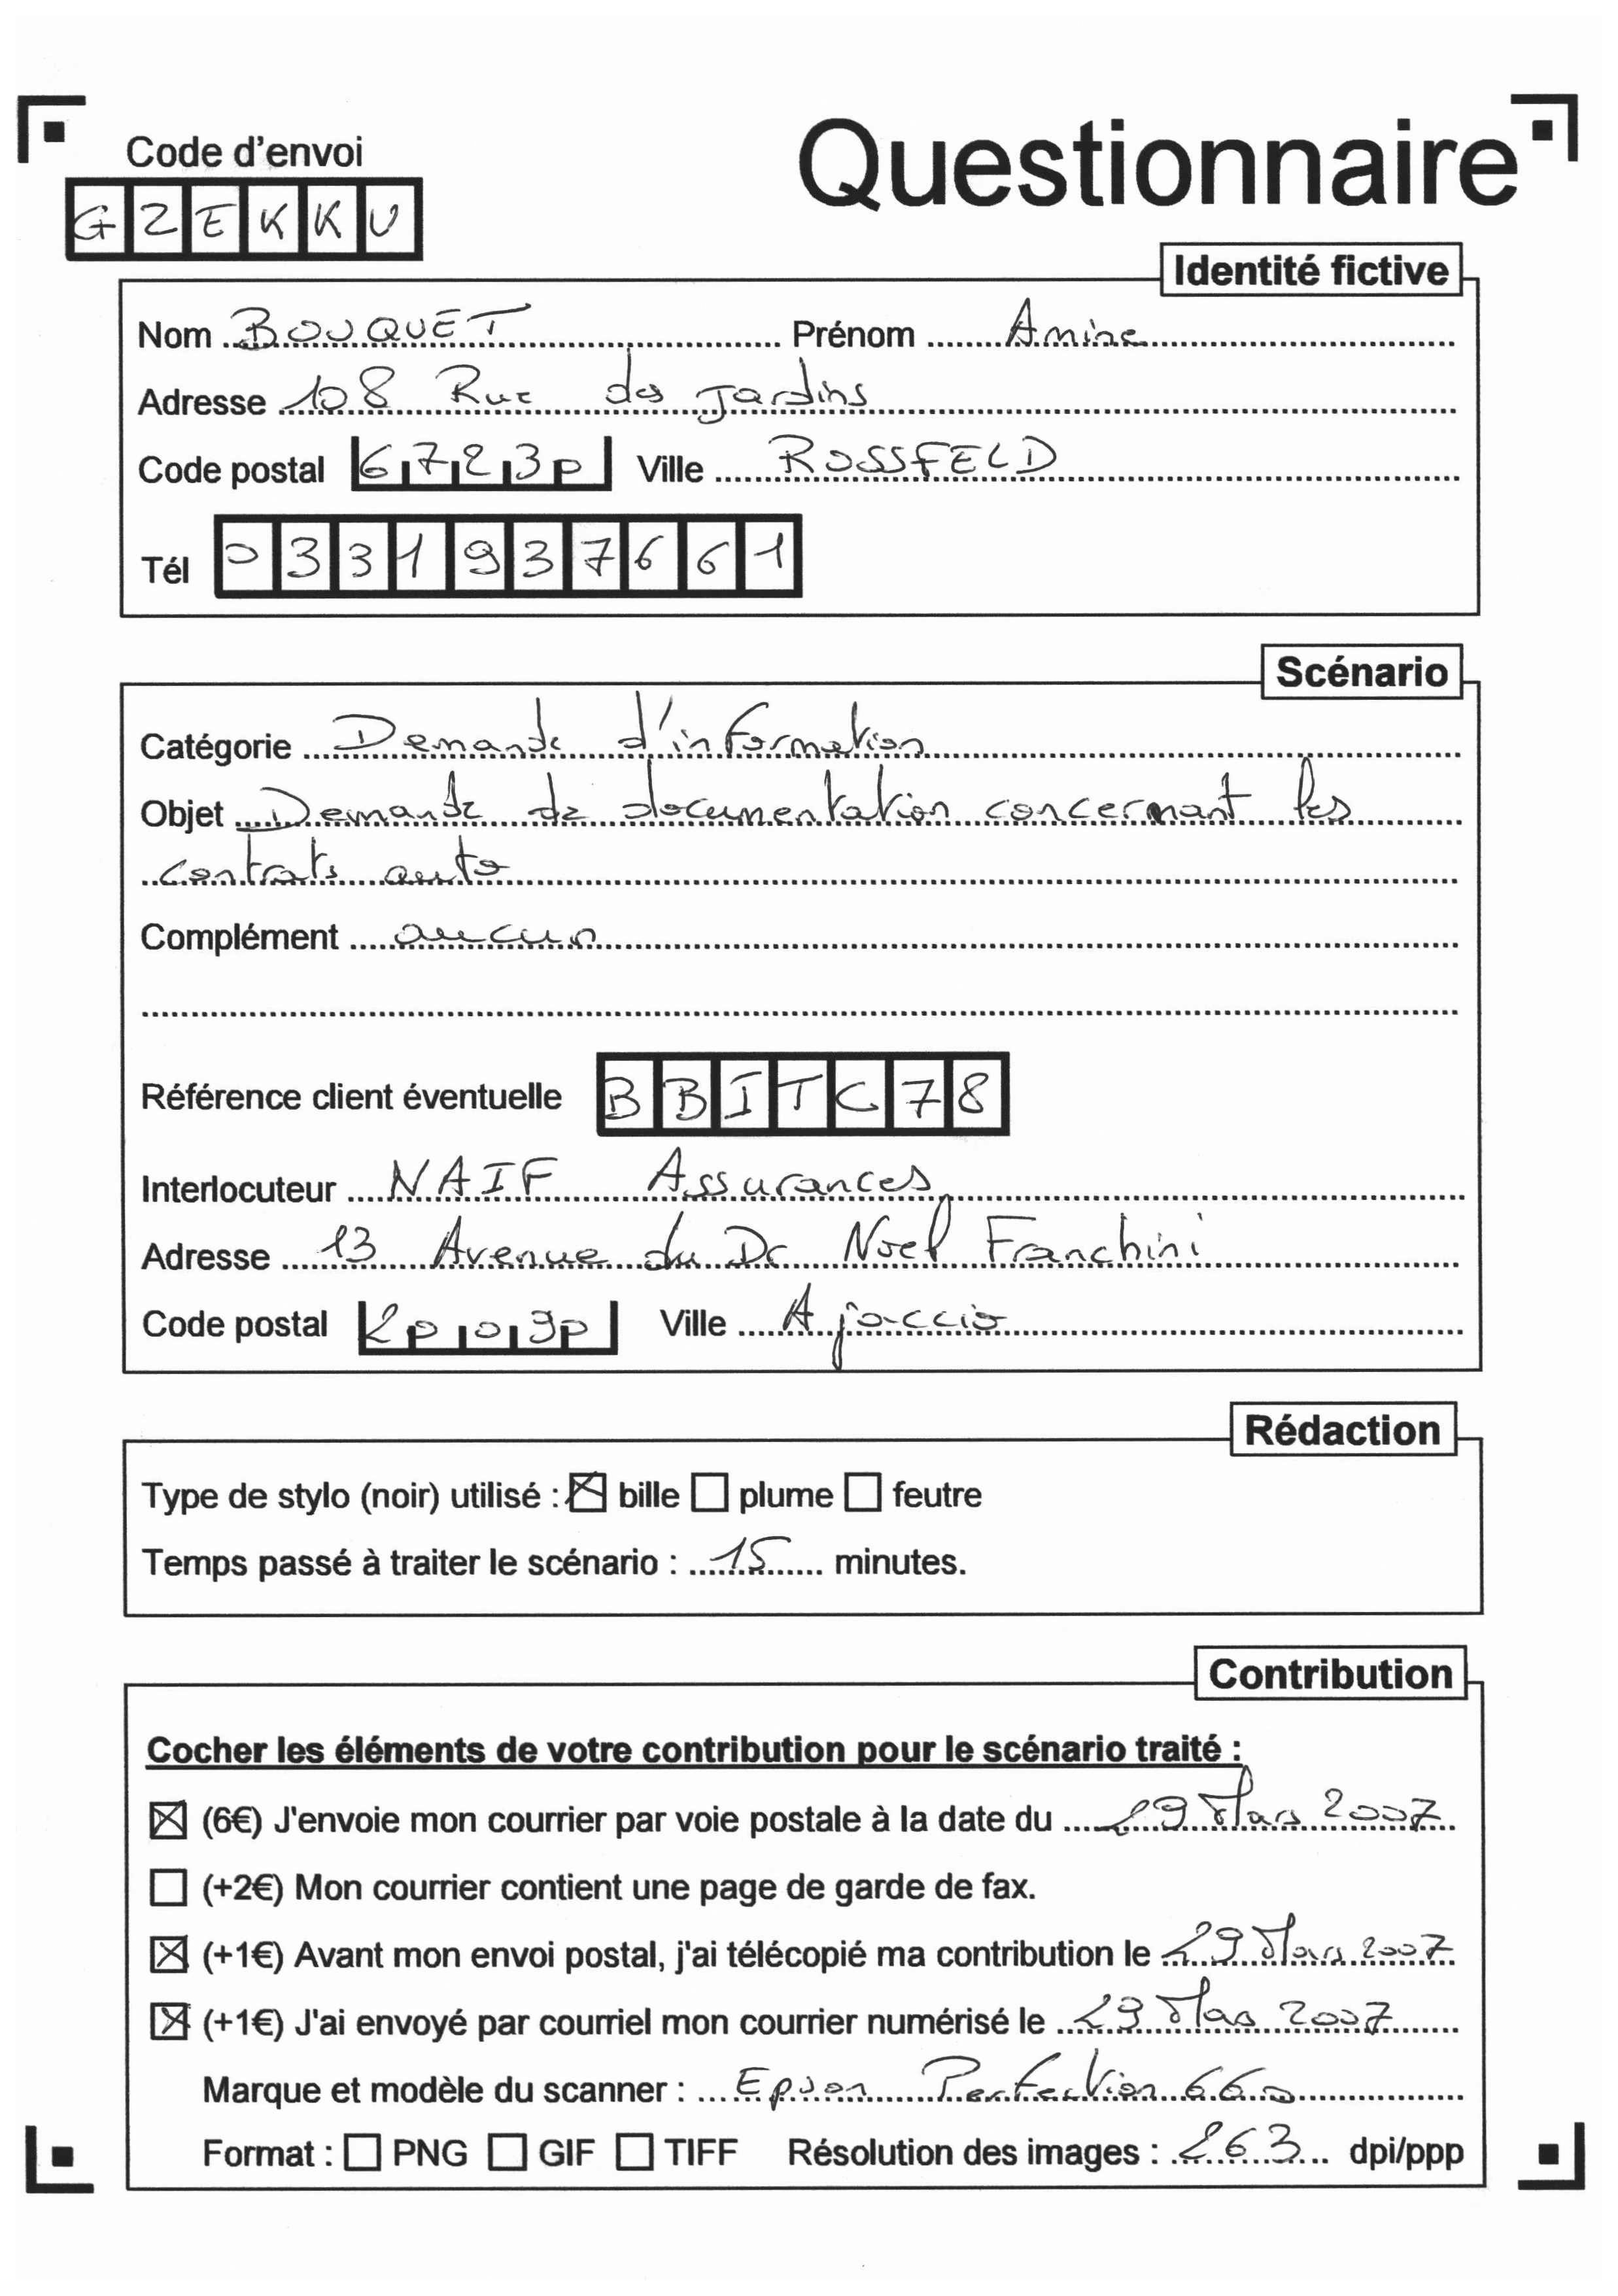 Code d'envoi
Questionnaire
GZEKKU
Identité fictive
Nom BOUQUET Prénom Amine
Adresse 108 Rue des Jardins
Code postal 67230 Ville ROSSFELD
Tél 0331937661
Scénario
Catégorie Demande d'information
Objet Demande de documentation concernant les
contrats auto
Complément aucun
Référence client éventuelle BBITC78
Interlocuteur NAIF Assurances
Adresse 13 Avenue du Dr Noel Franchini
Code postal 20090 Ville Ajaccio
Rédaction
Type de stylo (noir) utilisé : bille plume feutre
Temps passé à traiter le scénario : 15 minutes.
Contribution
Cocher les éléments de votre contribution pour le scénario traité :
(6€) J'envoie mon courrier par voie postale à la date du 29 Mars 2007
(+2€) Mon courrier contient une page de garde de fax.
(+1€) Avant mon envoi postal, j'ai télécopié ma contribution le 29 Mars 2007
(+1€) J'ai envoyé par courriel mon courrier numérisé le 29 Mars 2007
Marque et modèle du scanner : Epson Perfection 660
Format : PNG GIF TIFF Résolution des images : 263 dpi/ppp